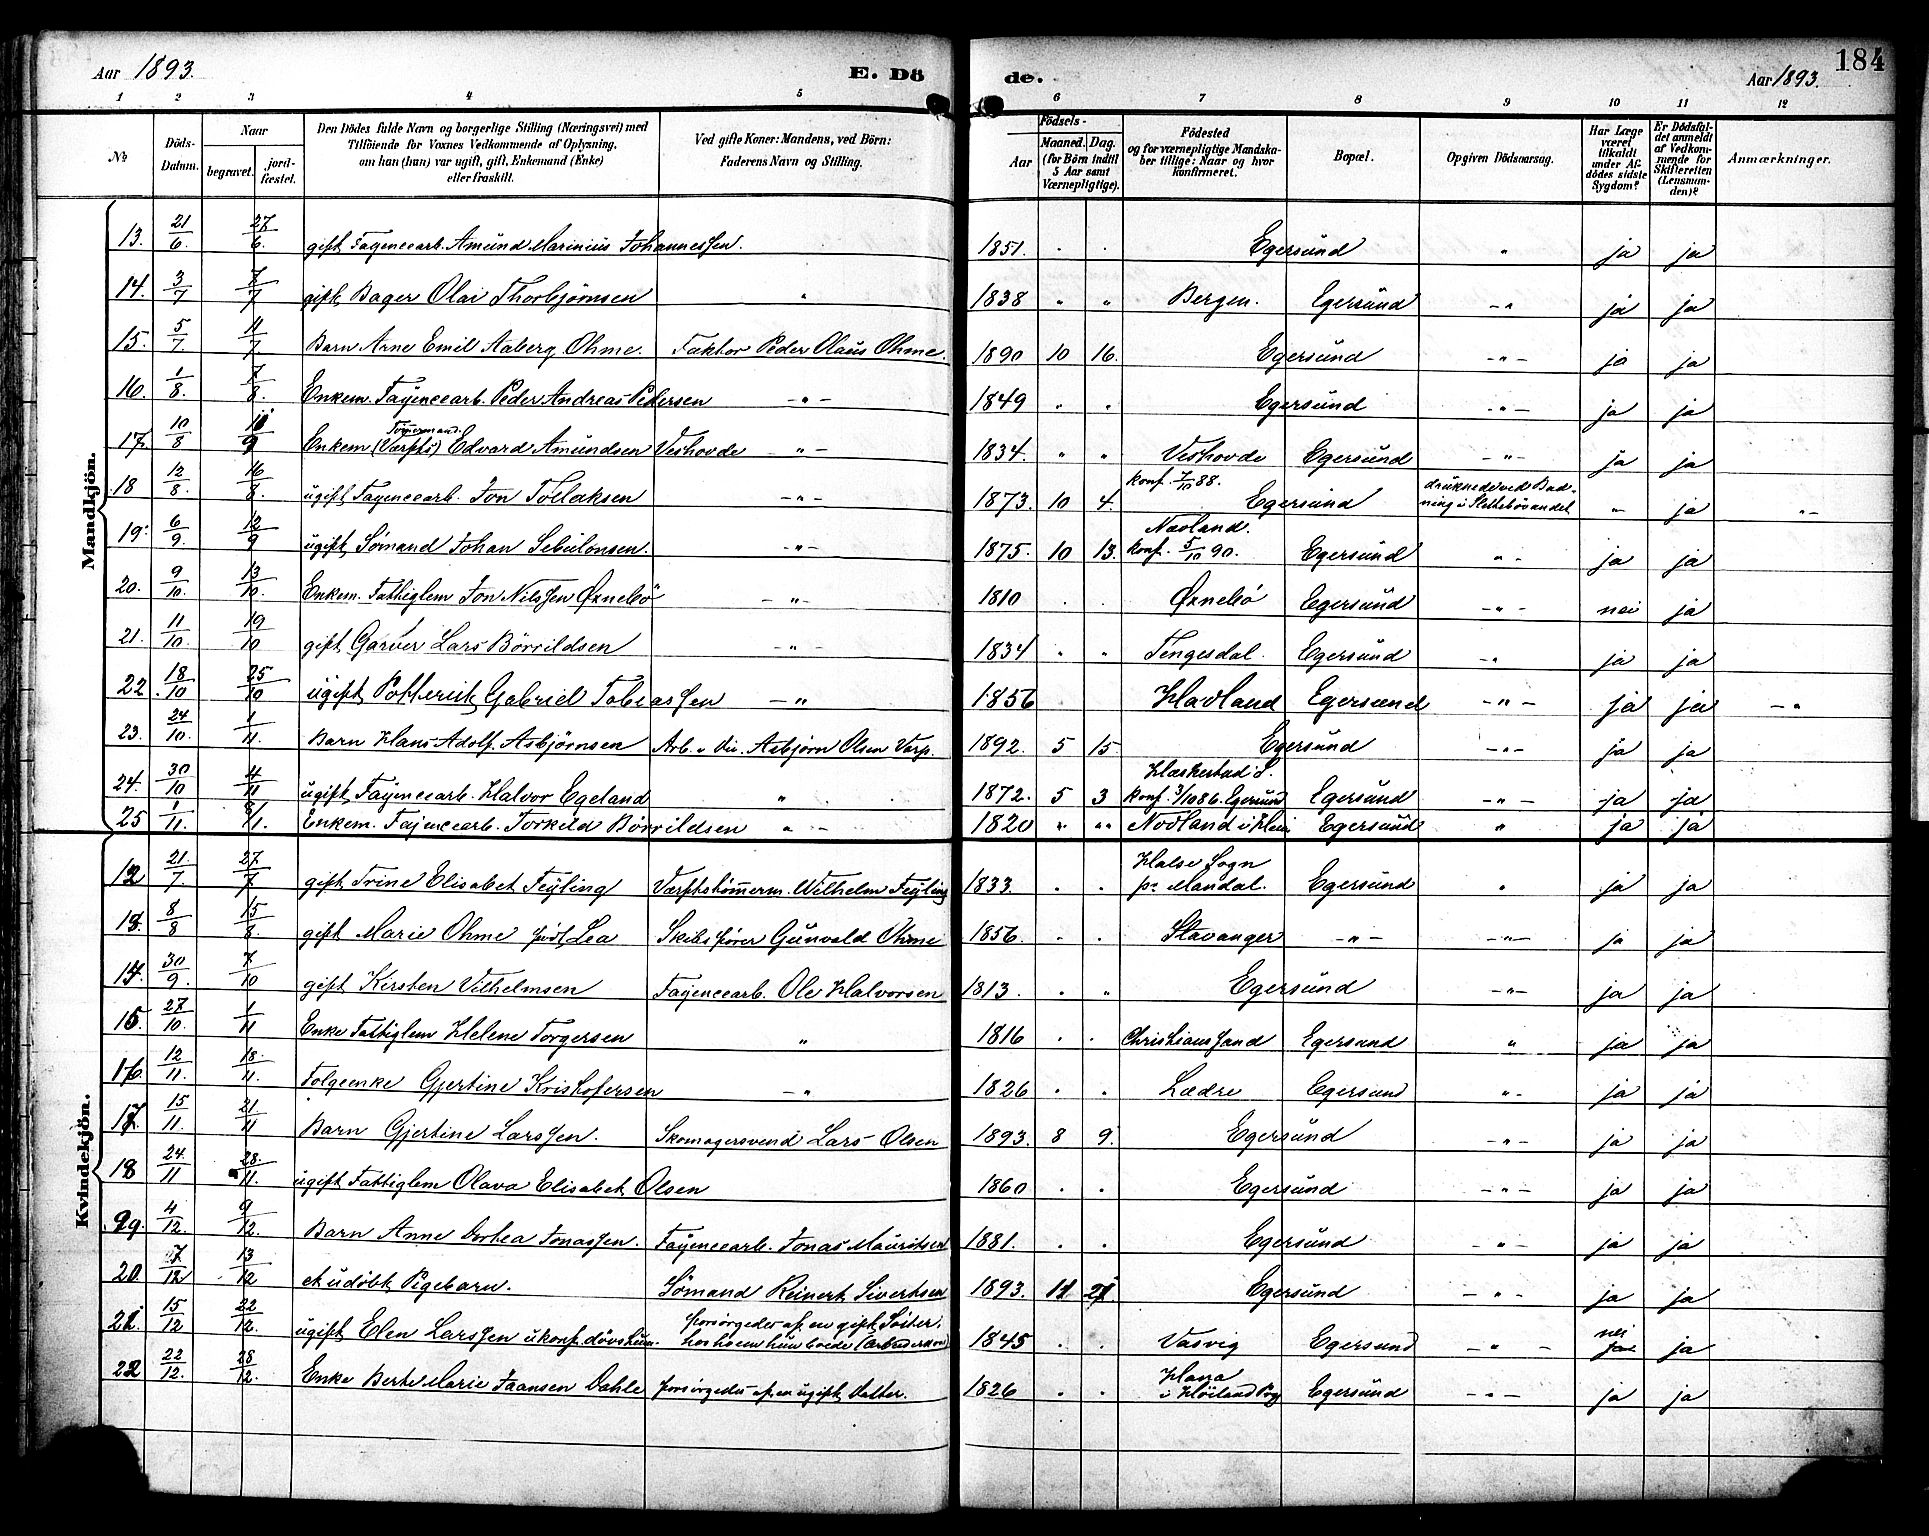 Aar 1893. E. Dö de. Aar 1893. 184
1 2 3 4 5 6 7 8 9 10 11 12
No Döds-Datum. Naar begravet. jordfæstet. Den Dödes fulde Navn og borgerlige Stilling (Næringsvei) med Tilföiende for Voxnes Vedkommende af Oplysning, om han (hun) var ugift, gift, Enkemand (Enke) eller fraskilt. Ved gifte Koner: Mandens, ved Börn: Faderens Navn og Stilling. Födsels- Aar Maaned. Dag. (for Börn indtil 5 Aar samt Værnepligtige). Födested og for værnepligtige Mandskaber tillige: Naar og hvor konfirmeret. Bopæl. Opgiven Dödsaarsag. Har Læge været tilkaldt under Afdödes sidste Sygdom? Er Dödsfaldet anmeldt af Vedkommende for Skifteretten (Lensmanden)? Anmærkninger.
Mandkjön.
13. 21/6 27/6. gift Fayencearb. Amund Marinius Johannessen. 1851. " " Egersund " ja ja
14. 3/7 7/7 gift Bager Olai Thorbjørnsen " 1838 " " Bergen. Egersund -"- ja ja
15. 5/7 11/7. Barn Arne Emil Aaberg Ohme. Faktor Peder Olaus Ohme. 1890 10 16. Egersund -"- ja ja
16. 1/8. 7/8. Enkem. Fayencearb. Peder Andreas Pedersen -"- 1849 " " Egersund -"- ja ja
Tømermand.
17. 10/8 Enkem (Værfts) Edvard Amundsen Veshovde -"- 1834. " " Veshovde Egersund -"- ja ja
18 12/8. 16/8. ugift Fayencearb. Jon Tollaksen -"- 1873. 10 4. konf. 7/10 88. Egersund druknede ved Badning i Slettebövandet. " ja -"
19. 6/9. 12/9 ugift Sømand Johan Sebulonsen. -"- 1875. 10 13. Navland. konf. 5/10 90. Egersund "- ja ja
20. 9/10 13/10. Enkem. Fattiglem Jon Nilssen Øxnebö -"- 1810 . . Øxnebö Egersund -"- nei ja
21. 11/10. 19/10 gift Garver Lars Börrildsen -"- 1834 " " Tengesdal. Egersund -" ja ja
22 18/10 25/10 ugift Gabriel Tobiassen -" 1856 Havland Egersund -"- ja ja -"
23. 24/10. 1/11. Barn Hans Adolf Asbjørnsen Arb. v. Asbjørn Olsen 1892. 5 15. Egersund -"- ja ja
24. 30/10 4/11 ugift Fayencearb. Halvor Egeland " 1872. 5 3 Hæskestad i L. konf. 3/10 86. Egersund Egersund -"- ja ja
25 1/11. 8/11. Enkem. Fajencearb. Torkild Börrildsen "- 1820 " " Novland i Egersund " ja ja
Kvindekjön.
12 21./7. 27/7 gift Trine Elisabet Feyling Værftstømerm. Wilhelm Feyling 1833. . . Halse Sogn pr Mandal. Egersund " ja ja
13. 8/8 15/8. gift Marie Ohme född Lea Skibsfører Gunvald Ohme 1856. . . Stavanger -"- -"- ja ja
14. 30/9. 7/10 gift Kirsten Vilhelmsen Fayencearb. Ole Halvorsen 1813. " " Egersund -"- ja ja
15. 27/10. 1/11 Enke Fattiglem Helene Torgersen " 1816 " . Christianssand Egersund " ja ja
16. 12/11. 18./11. Folgeenke Gjertine Kristofersen -" 1826 " " Lædre Egersund "- ja ja
17. 15/11. 21/11 Barn Gjertine Larssen. Skomagersvend Lars Olsen 1893. 8 9. Egersund -"- ja ja
18 24./11 28./11. ugift Fattiglem Olava Elisabet Olsen 1860 . . Egersund -"- ja ja
19. 4/12. 9/12. Barn Anne Dortea Jonassen. Fayencearb. Jonas Mauritsen 1881. . . Egersund -"- ja ja
20. 7/12 13/12 et udøbt Pigebarn. Sømand Reinert Sivertsen 1893. 11 21. Egersund -"- ja ja
21. 15/12 22/12. ugift Elen Larssen ukonf. dövstum. forsörgedes af en gift Söster, hos hvem hun boede 1845 . . Vasvig Egersund -"- nei ja
22 22/12. 28/12. Enke Berte Marie Jaansen Dahle forsörgedes af en ugift Datter. 1826 . " Hana i Höiland Prg Egersund -"- ja ja